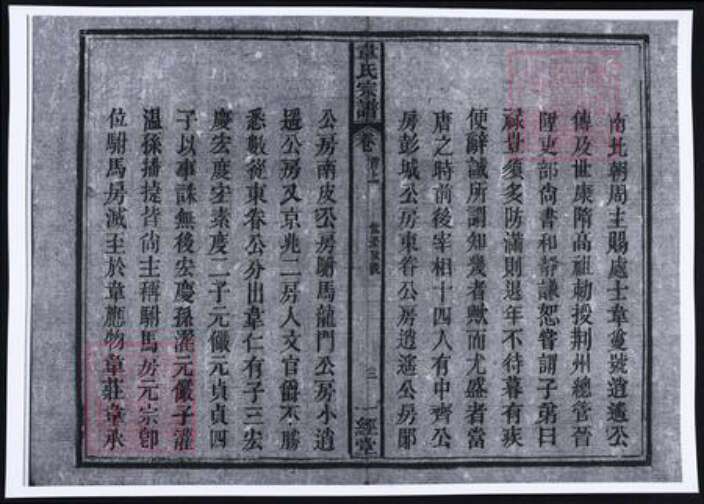 南北朝周主賜處士韋敻號逍遙公
傳及世康隋高祖勅授荆州總管晉
陞吏部尚書和靜謙恕嘗謂子弟曰
祿豈須多防滿則退年不待暮有疾
便辭誠所謂知幾者歟而尤盛者當
唐之時前後宰相十四人有中齊公
房彭城公房東眷公房逍遙公房郧
韋氏宗譜
卷 首上
三
一經堂
公房南皮公房駙馬龍門公房小逍
遙公房又京兆二房人文官爵不勝
悉數從東眷公分出韋仁有子三宏
慶宏度宏素度二子元儼元貞貞四
子以事誅無後宏慶孫濯元儼子灌
温孫播捷皆尚主稱駙馬房元宗卽
位駙馬房滅至於韋應物韋莊韋承